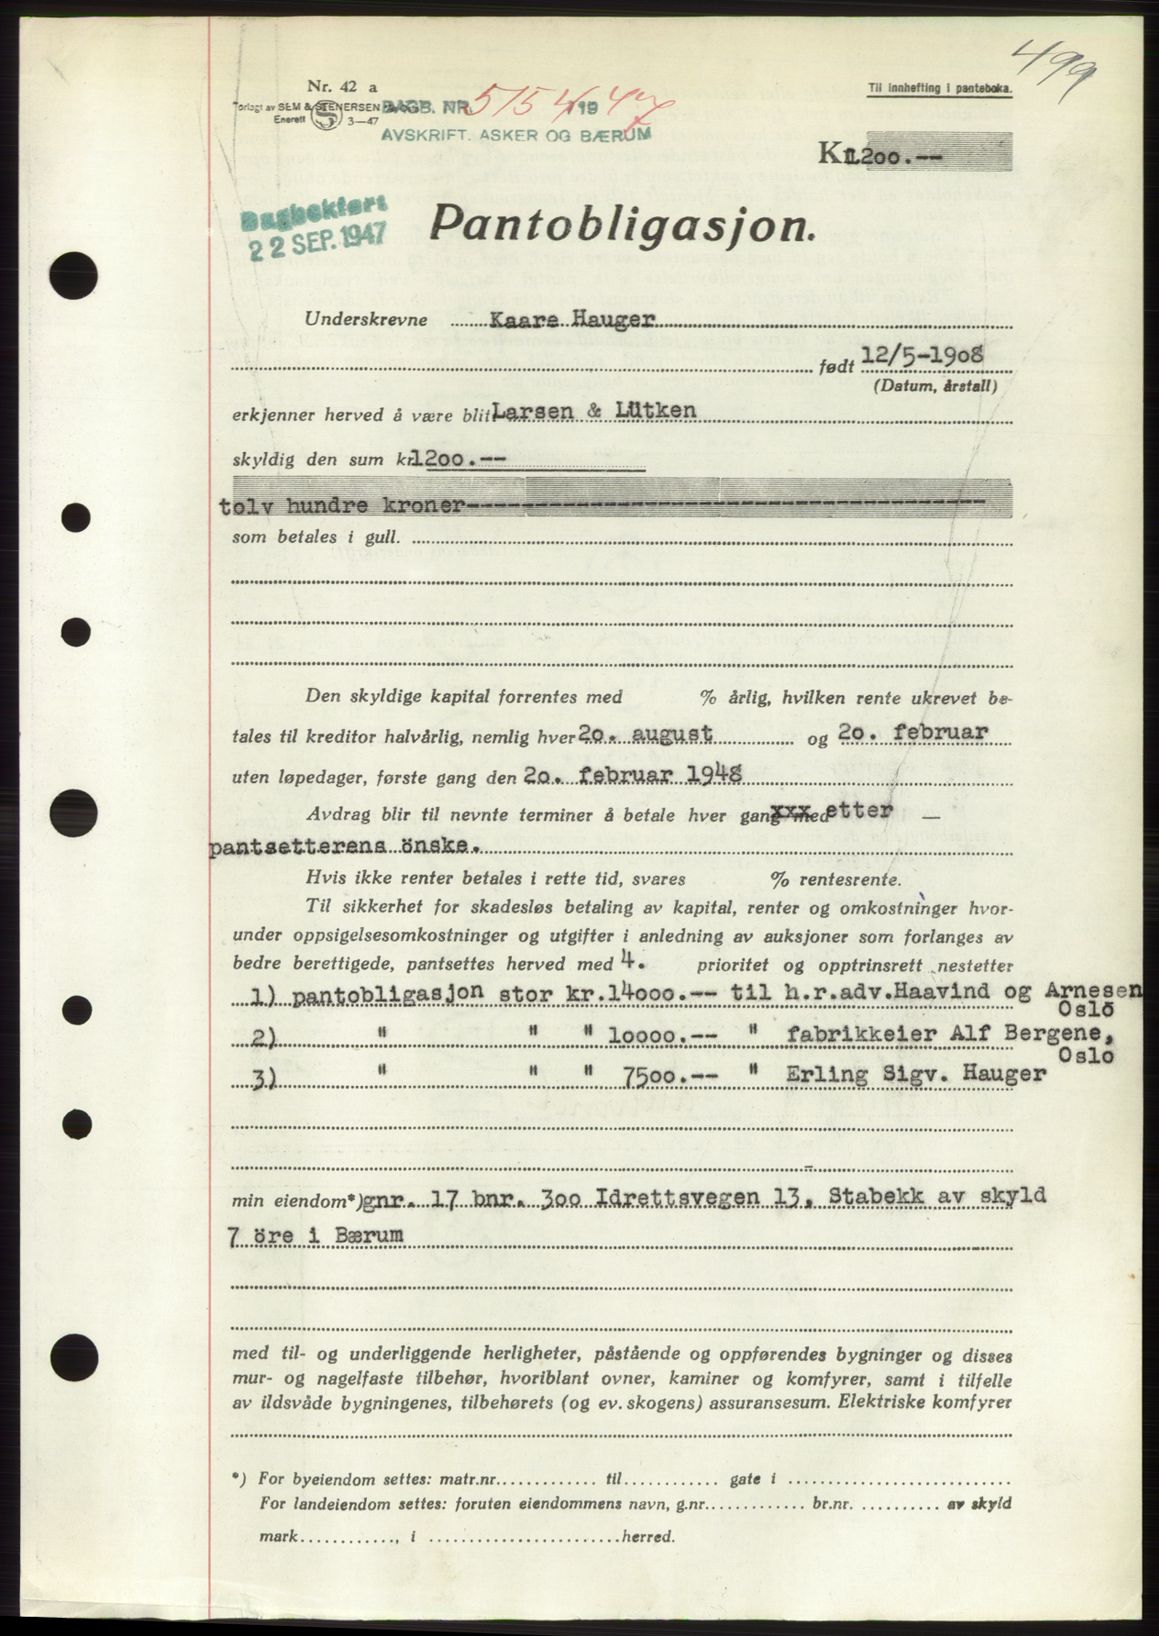 499
Nr. 42 a
Til innhefting i panteboka.
Forlagt av SEM & STENERSEN
Enerett 3—47
DAGB. NR. 5154 19 47
AVSKRIFT. ASKER OG BÆRUM
Kr. 1200.--
Dagbokført
22 SEP. 1947
Pantobligasjon.
Underskrevne Kaare Hauger
født 12/5-1908
(Datum, årstall)
erkjenner herved å være blitt Larsen & Lütken
skyldig den sum kr. 1200.--
tolv hundre kroner---
som betales i gull.
Den skyldige kapital forrentes med % årlig, hvilken rente ukrevet be-
tales til kreditor halvårlig, nemlig hver 20. august og 20. februar
uten løpedager, første gang den 20. februar 1948
Avdrag blir til nevnte terminer å betale hver gang med xxx etter —
pantsetterens önske.
Hvis ikke renter betales i rette tid, svares % rentesrente.
Til sikkerhet for skadesløs betaling av kapital, renter og omkostninger hvor-
under oppsigelsesomkostninger og utgifter i anledning av auksjoner som forlanges av
bedre berettigede, pantsettes herved med 4. prioritet og opptrinsrett nestetter
1) pantobligasjon stor kr.14000.-- til h.r.adv.Haavind og Arnesen
Oslo
2) " " " 10000.-- " fabrikkeier Alf Bergene,
Oslo
3) " " " 7500.-- " Erling Sigv. Hauger
min eiendom*) gnr. 17 bnr. 300 Idrettsvegen 13, Stabekk av skyld
7 öre i Bærum
med til- og underliggende herligheter, påstående og oppførendes bygninger og disses
mur- og nagelfaste tilbehør, hvoriblant ovner, kaminer og komfyrer, samt i tilfelle
av ildsvåde bygningenes, tilbehørets (og ev. skogens) assuransesum. Elektriske komfyrer
*) For byeiendom settes: matr.nr. til gate i
For landeiendom settes: foruten eiendommens navn, g.nr. br.nr. av skyld
mark , i herred.